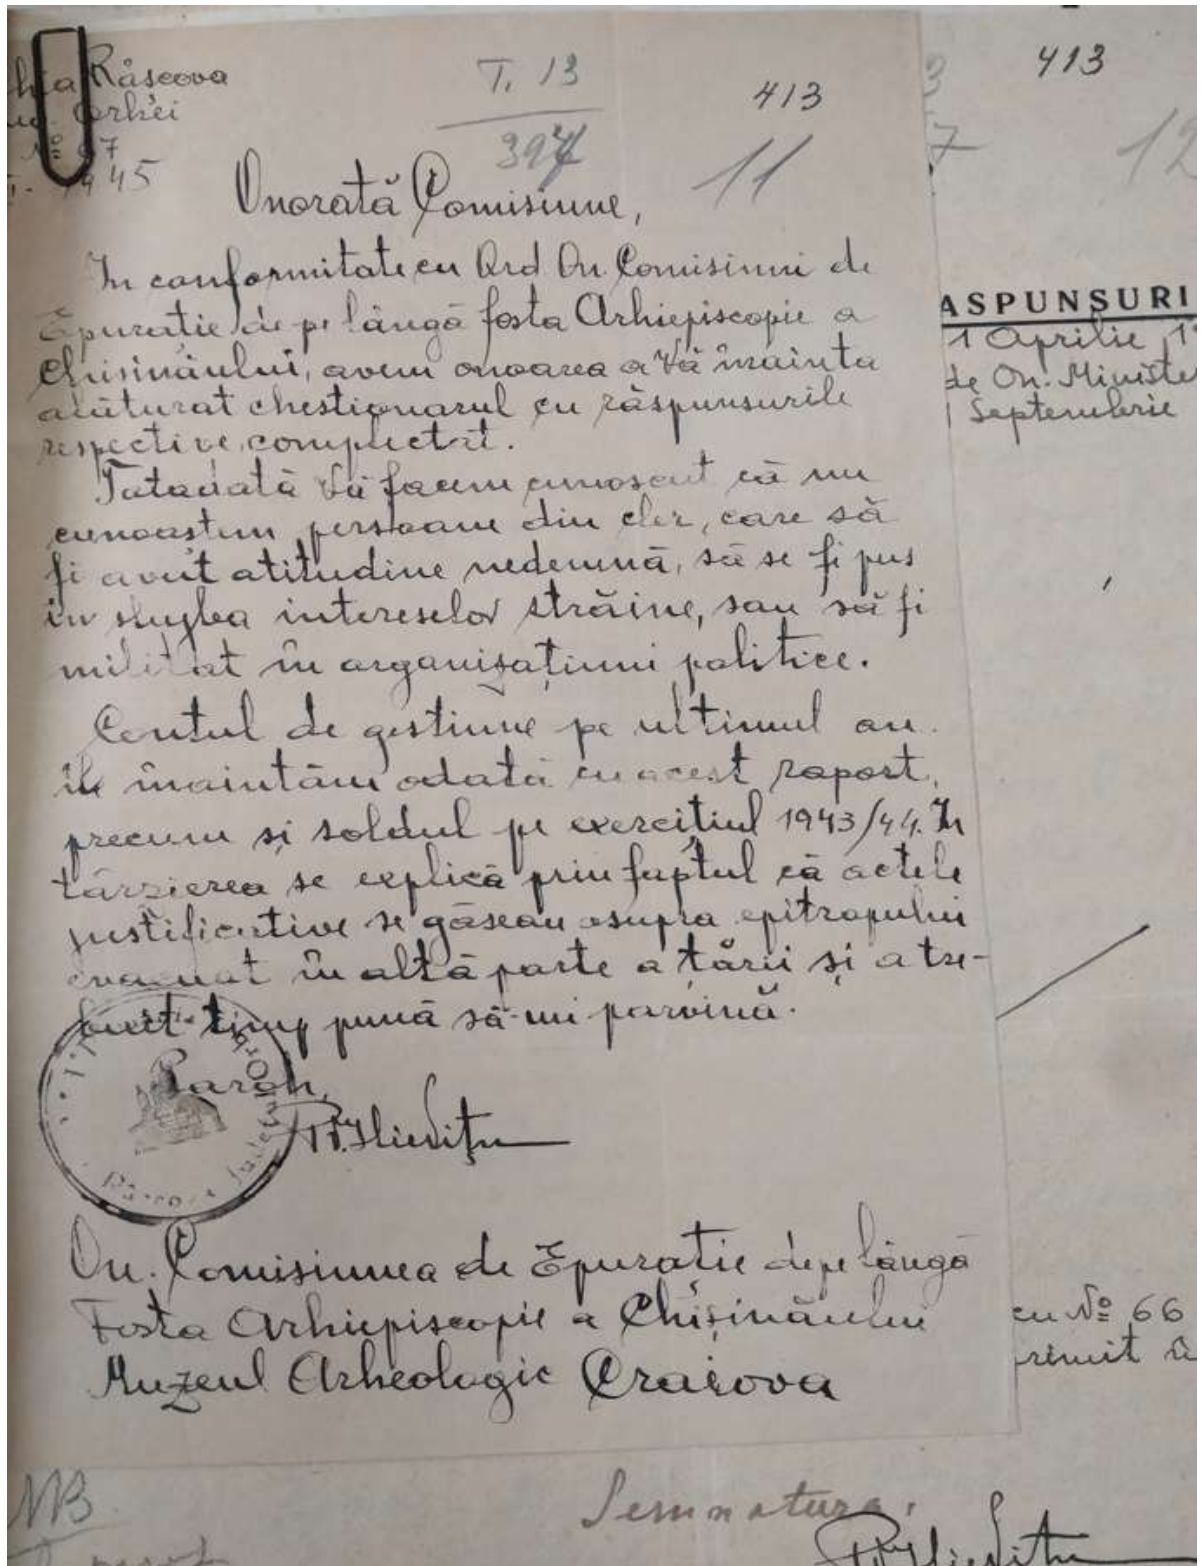 Râscova
Orhei
1945
T. 13
397
413
11
Onorată Comisiune,
In conformitate cu Ord. On. Comisiuni de
Epurație de pe lângă fosta Arhiepiscopie a
Chisinăului, avem onoarea a Vă înainta
alăturat chestionarul cu răspunsurile
respective, complectat.
Totodată Vă facem cunoscut că nu
cunoastem persoane din cler, care să
fi avut atitudine nedemnă, să se fi pus
in slujba intereselor străine, sau să fi
militat în organizațiuni politice.
Contul de gestiune pe ultimul an
îl înaintăm odată cu acest raport,
precum și soldul pe exercițiul 1943/44. In
târzierea se explică prin faptul că actele
justificative se găseau asupra epitropului
evacuat în altă parte a țării și a tre-
buit timp pună să-mi parvină.
Paroh,
Pr. Ilie Dițu
On. Comisiunea de Epurație depe lângă
Fosta Arhiepiscopie a Chișinăului
Muzeul Arheologic Craiova
413
12
ASPUNSURI
1 Aprilie
de On. Ministe
Septembrie
cu № 66
primit
NB
Semnatura: